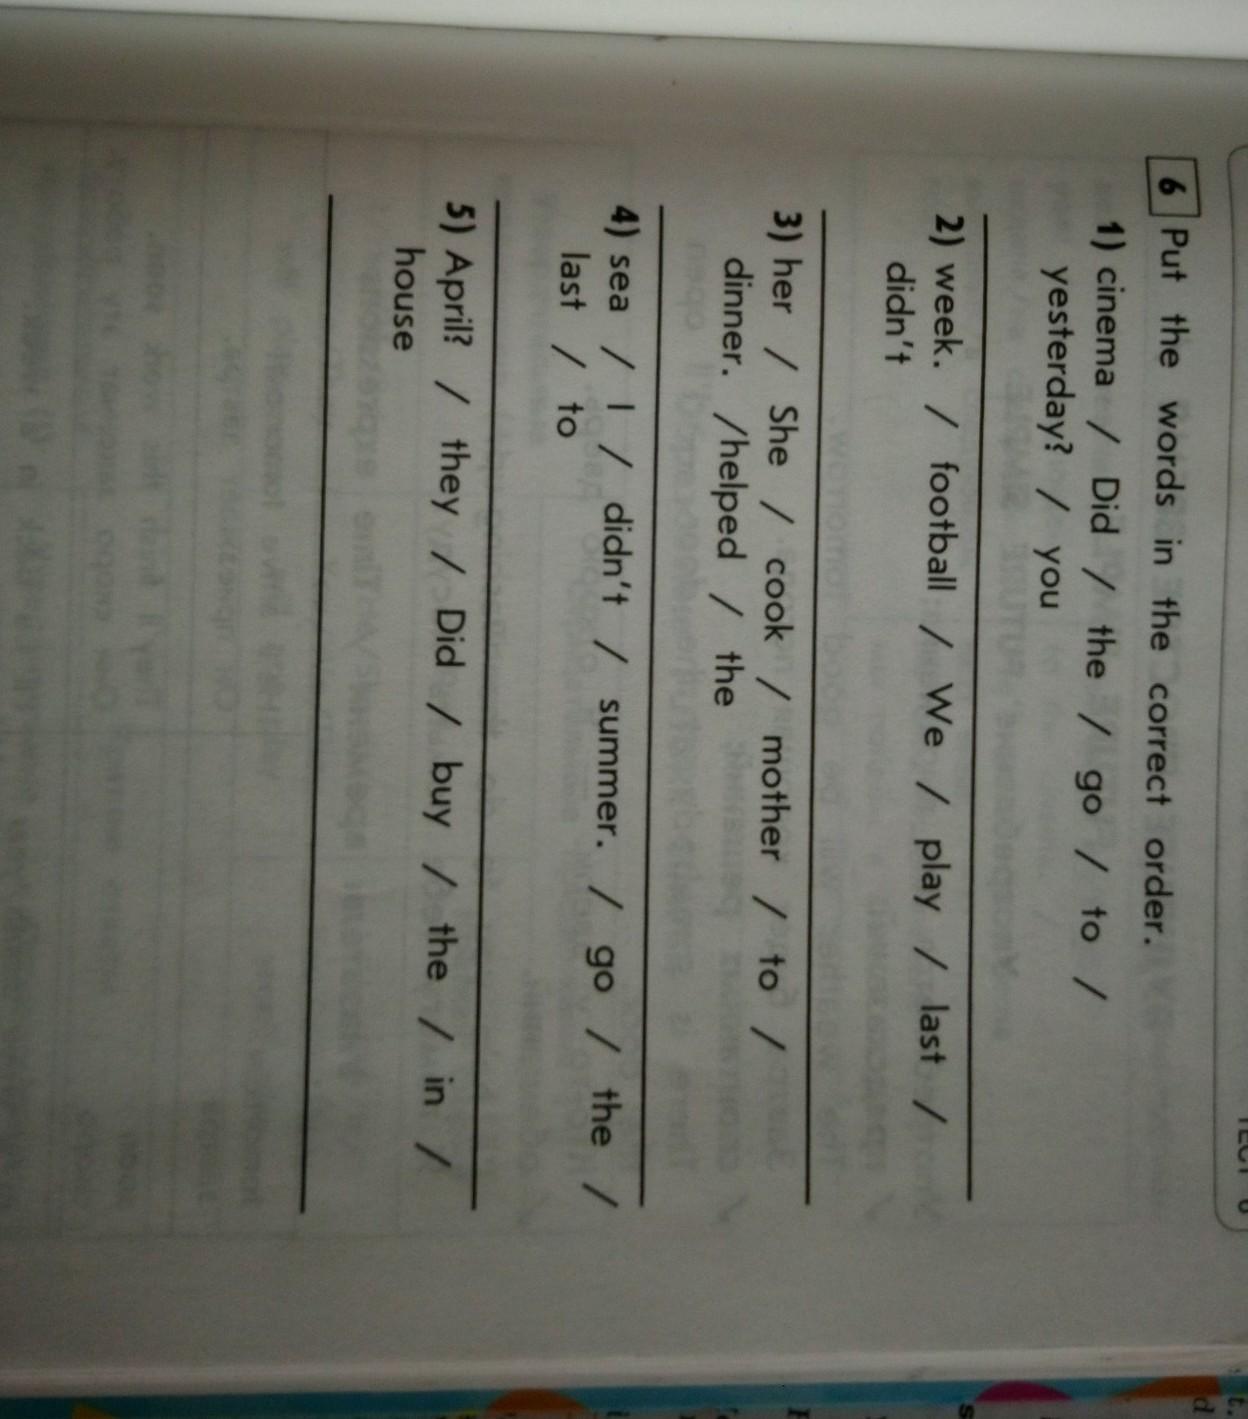 6 Put the words in the correct order.
1) cinema / Did / the / go / to /
yesterday? / you
2) week. / football / We / play / last /
didn't
3) her / She / cook / mother / to /
dinner. /helped / the
4) sea / I / didn't / summer. / go / the /
last / to
5) April? / they / Did / buy / the / in /
house